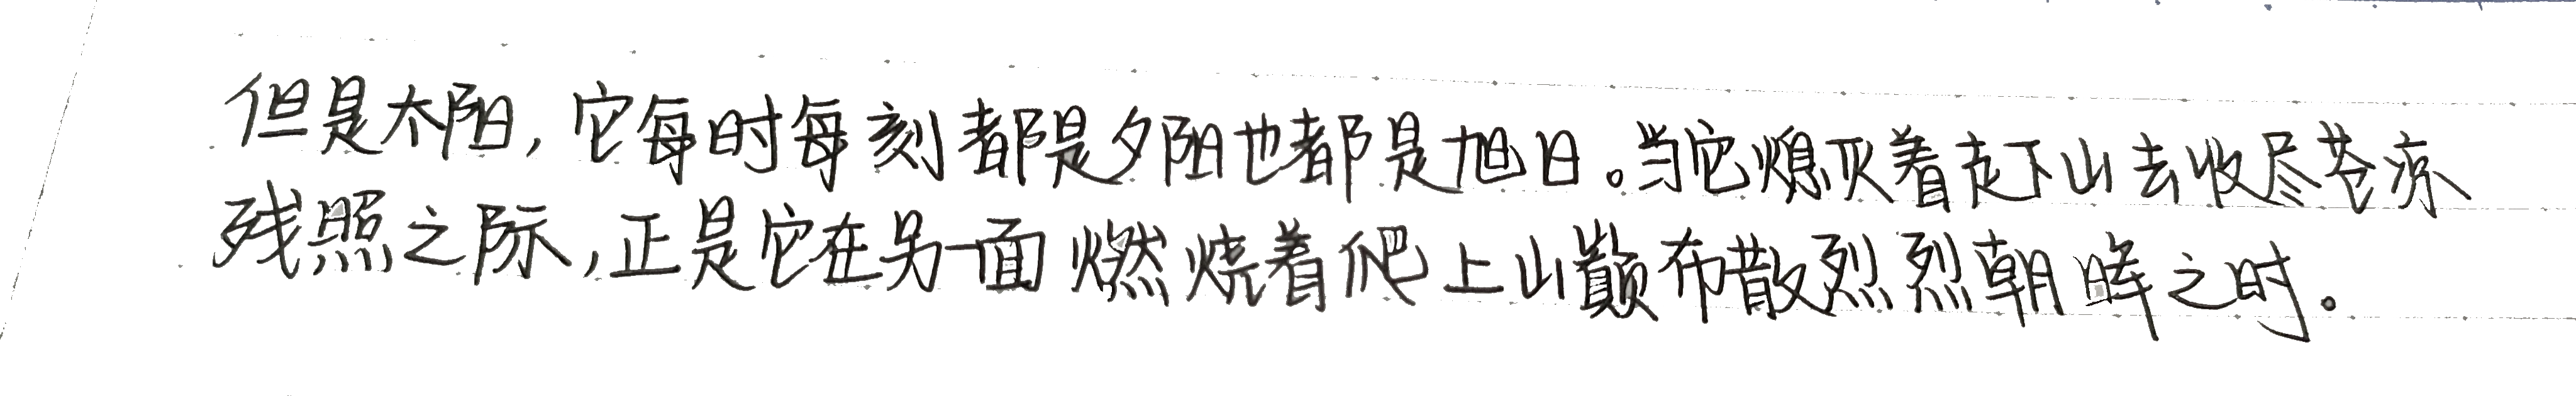 但是太阳，它每时每刻都是夕阳也都是旭日。当它熄灭着走下山去收尽苍凉
残照之际，正是它在另一面燃烧着爬上山巅布散烈烈朝晖之时。